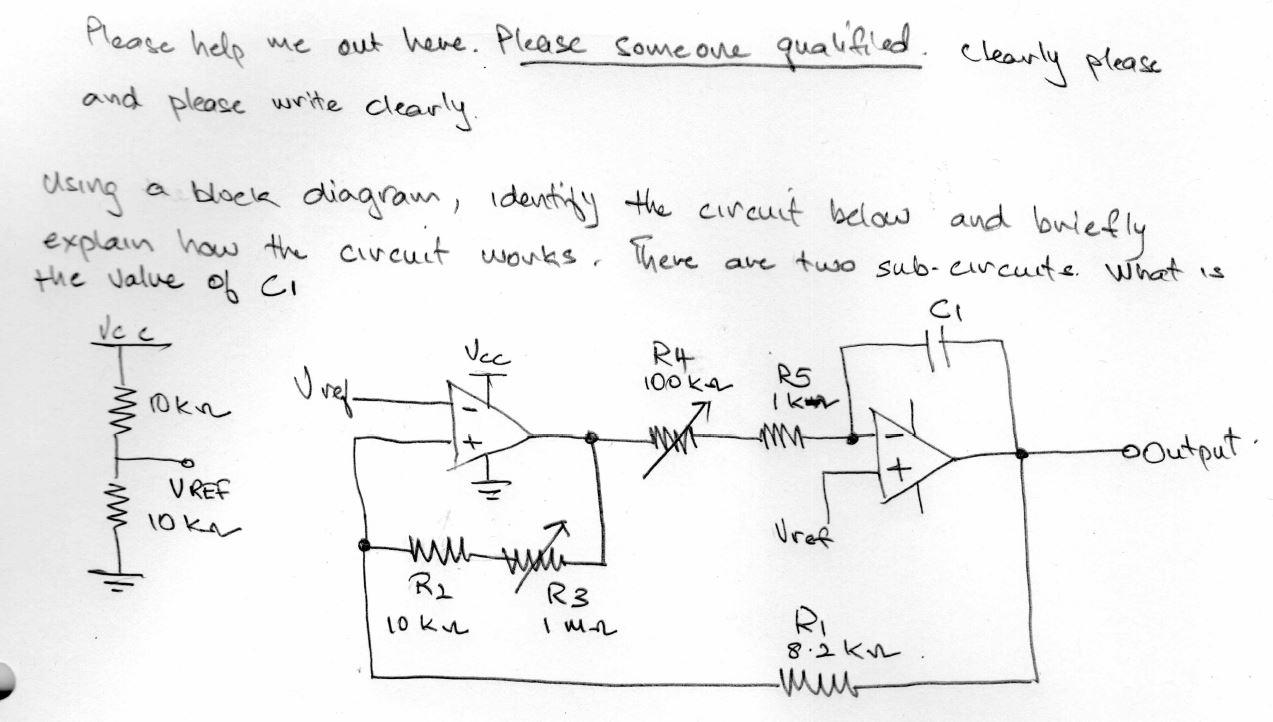 Please help me out here. Please someone qualified. Clearly please
and please write clearly.
Using a block diagram, identify the circuit below and briefly
explain how the circuit works. There are two sub-circuits. What is
the value of C1
Vcc
10kΩ
VREF
10kΩ
Vref
Vcc
-
+
R2
10kΩ
R3
1MΩ
R4
100kΩ
R5
1kΩ
C1
-
+
Vref
Output.
R1
8.2kΩ.